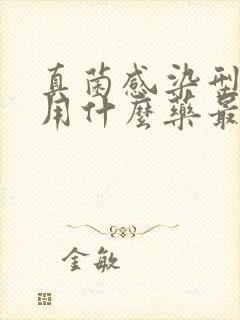 真菌感染型
用什麼藥最
金敏